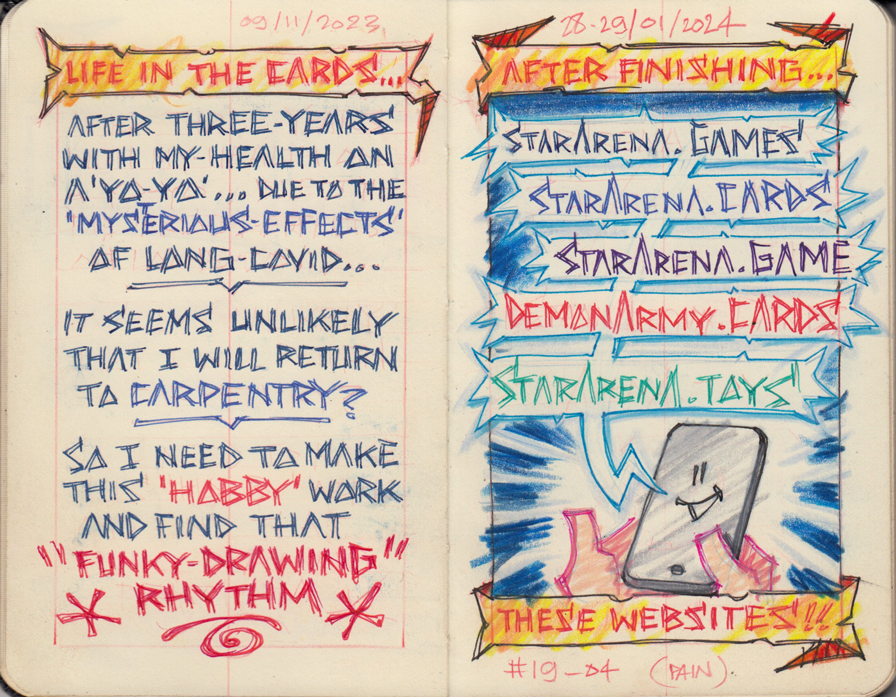 09/11/2023
LIFE IN THE CARDS...
AFTER THREE-YEARS
WITH MY-HEALTH ON
A 'YO-YO'... DUE TO THE
'MYSTERIOUS-EFFECTS'
OF LONG-COVID...
IT SEEMS UNLIKELY
THAT I WILL RETURN
TO CARPENTRY?
SO I NEED TO MAKE
THIS 'HOBBY' WORK
AND FIND THAT
"FUNKY-DRAWING"
RHYTHM
28-29/01/2024
AFTER FINISHING...
STARARENA.GAMES
STARARENA.CARDS
STARARENA.GAME
DEMONARMY.CARDS
STARARENA.TOYS
THESE WEBSITES!!
#19-04 (PAIN).